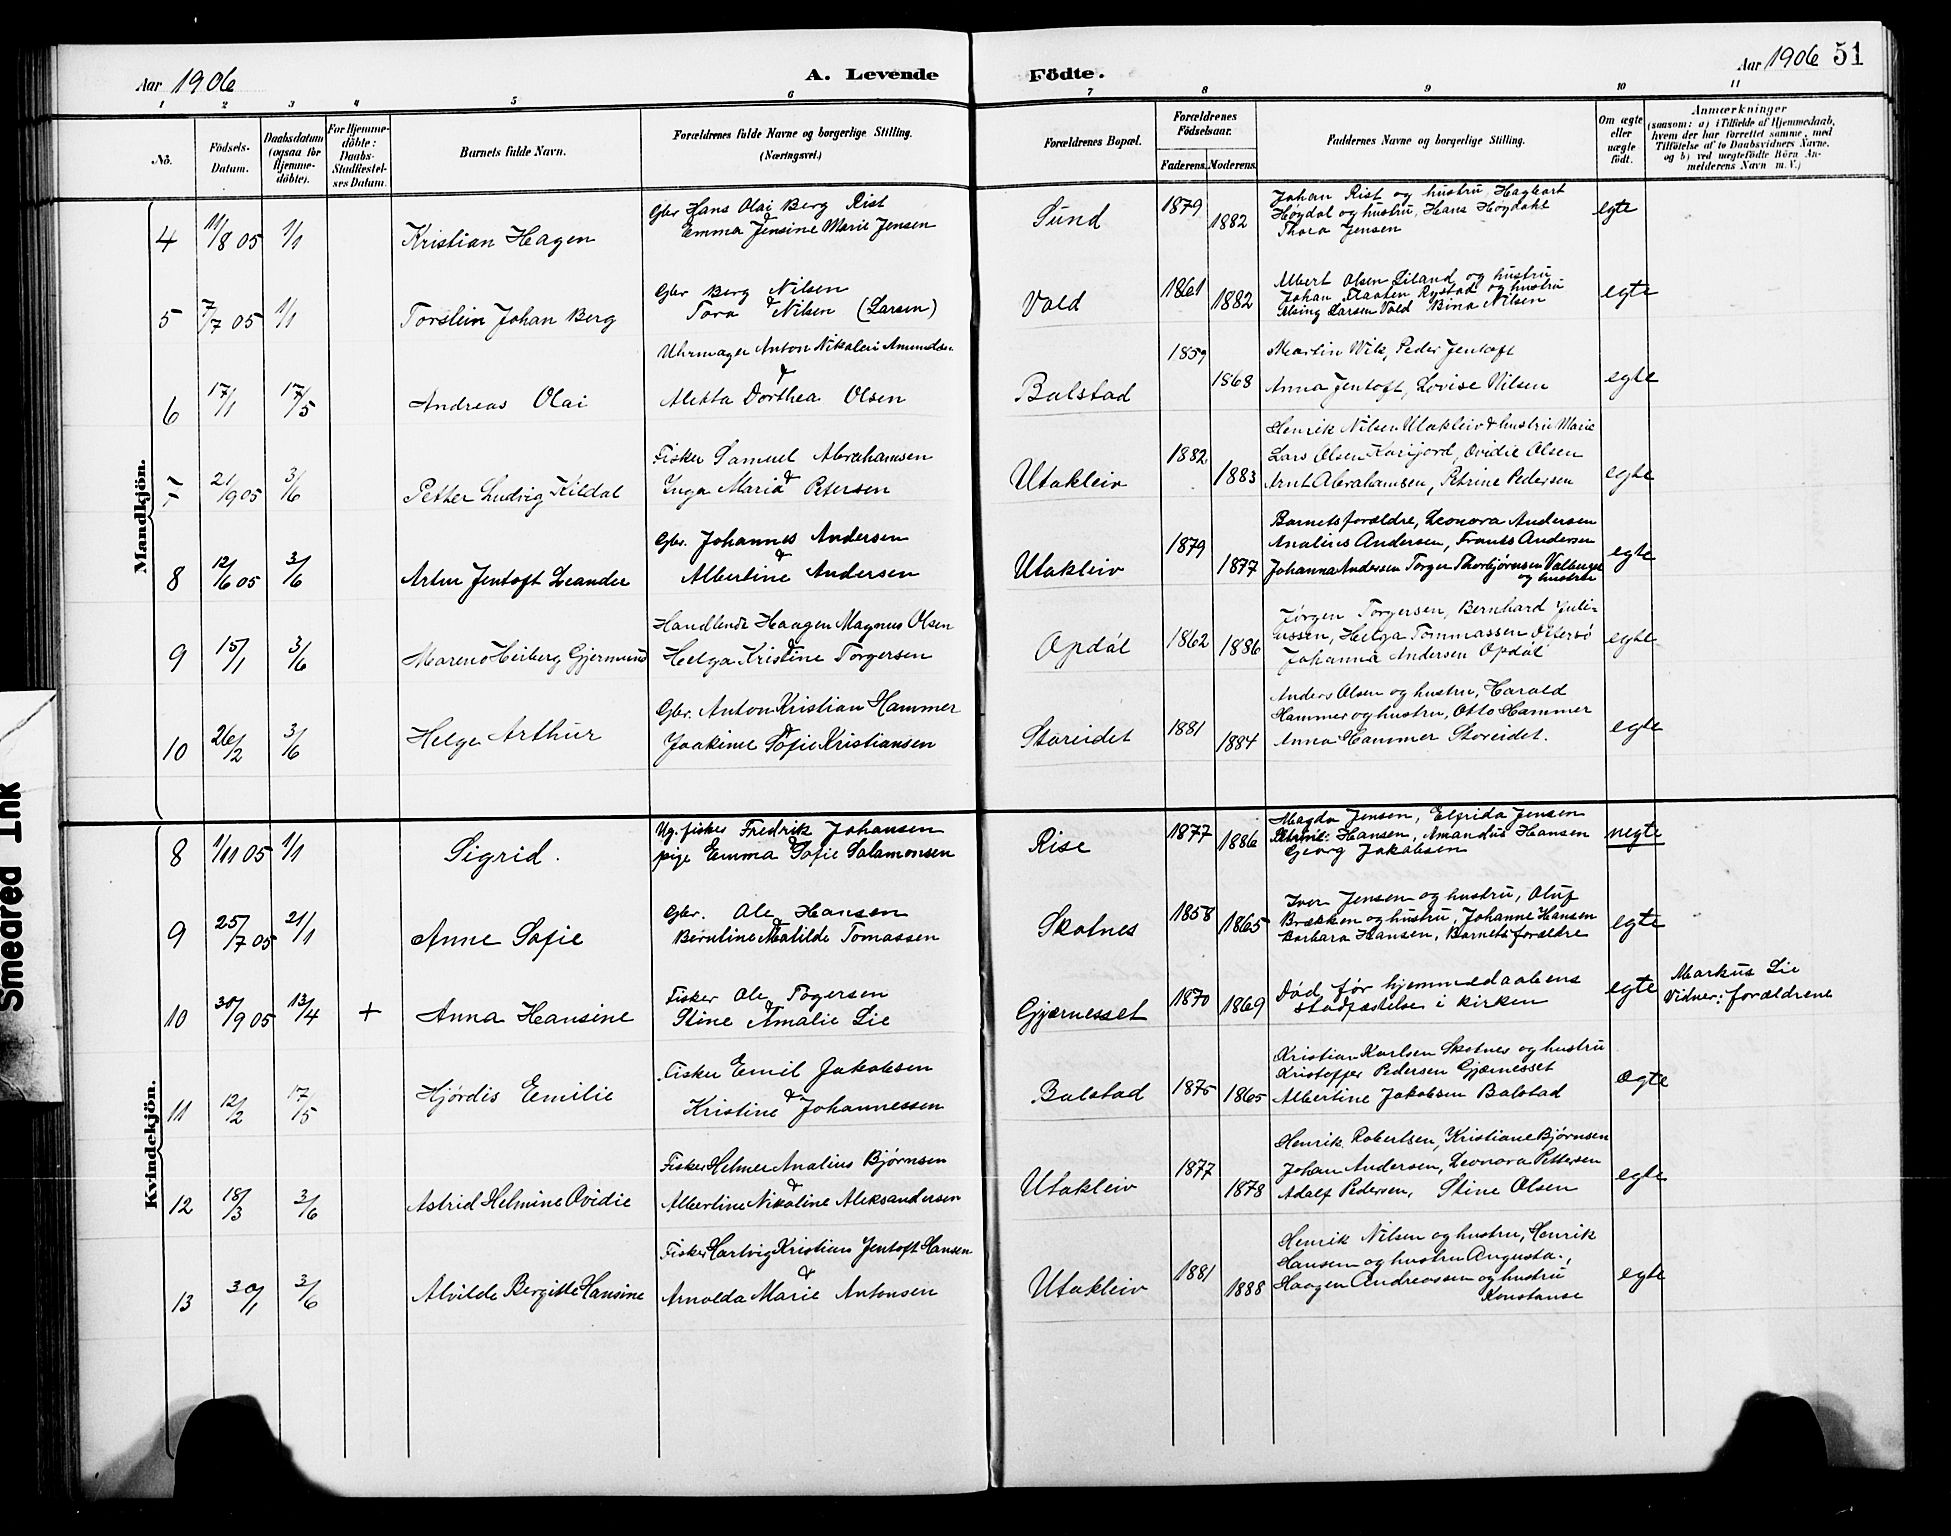 Aar 1906
A. Levende
Födte.
Aar 1906 51
1 2 3 4 5 6 7 8 9 10 11
Nö.
Födsels-
Datum.
Daabsdatum
(ogsaa for
Hjemme-
döbte).
For Hjemme-
döbte:
Daabs-
Stadfæstel-
ses Datum.
Barnets fulde Navn.
Forældrenes fulde Navne og borgerlige Stilling.
(Næringsvei.)
Forældrenes Bopæl.
Forældrenes
Födselsaar.
Faderens. Moderens.
Faddernes Navne og borgerlige Stilling.
Om ægte
eller
uægte
födt.
Anmærkninger
(saasom: a) i Tilfælde af Hjemmedaab,
hvem der har forrettet samme, med
Tilföielse af to Daabsvidners Navne,
og b) ved uægtefödte Börn An-
melderens Navn m. V.)
Mandkjön.
4 11/8 05 1/1 Kristian Hagen
Gbr Hans Olai Berg Rist
&
Emma Jensine Marie Jensen
Sund 1879 1882
Johan Rist og hustru, Hagbart
Høydal og hustru, Hans Høydahl
Thora Jensen
egte
5 7/7 05 1/1 Torstein Johan Berg
Gbr Berg Nilsen
&
Tora Nilsen (Larsen)
Vold 1861 1882
Albert Olsen Liland og hustru
Johan Flaaten Rystad og hustru
Elsing Larsen Vold Bina Nilsen
egte
6 17/1 17/5 Andreas Olai
Uhrmager Anton Nikolai Amundsen
&
Aletta Dorthea Olsen
Balstad 1859 1868
Martin Wik, Peder Jentoft
Anna Jentoft, Lovise Nilsen
egte
7 21/9 05 3/6 Petter Ludvig Kildal
Fisker Samuel Abrahamsen
&
Inga Maria Petersen
Utakleiv 1882 1883
Henrik Nilsen Utakleiv & hustru Marie
Lars Olsen Kurfjord, Ovidie Olsen
Arnt Abrahamsen, Petrine Pedersen
egte
8 12/6 05 3/6 Artur Jentoft Leander
Gbr. Johannes Andersen
&
Albertine Andersen
Utakleiv 1879 1877
Barnets forældre, Leonora Andersen
Analius Andersen, Frants Andersen
Johanna Andersen Torger Thorbjørnsen Valberg
og hustru
egte
9 15/1 3/6 Mareno Heiberg Gjermund
Handlende Haagen Magnus Olsen
&
Helga Kristine Torgersen
Opdøl 1862 1886
Jørgen Torgersen, Bernhard Juli-
ussen, Helga Tommassen Ottersø
Johanna Andersen Opdøl
egte
10 26/2 3/6 Helge Arthur
Gbr. Anton Kristian Hammer
&
Joakine Sofie Kristiansen
Storeidet 1881 1884
Anders Olsen og hustru, Harald
Hammer og hustru, Otto Hammer
Anna Hammer Storeidet.
egte
Kvindekjön.
8 1/11 05 1/1 Sigrid.
Ug. fisker Fredrik Johansen
&
pige Emma Sofie Salamonsen
Rise 1877 1886
Magda Jensen, Elfrida Jensen
Petrine Hansen, Amandus Hansen
Georg Jakobsen
uegte
9 25/7 05 21/1 Anne Sofie
Gbr. Ole Hansen
&
Berntine Matilde Tomassen
Skotnes 1858 1865
Iver Jensen og hustru, Oluf
Brækken og hustru, Johanne Hansen
Barbara Hansen, Barnets forældre
egte
10 30/9 05 13/4 + Anna Hansine
Fisker Ole Togersen
&
Stine Amalie Lie
Gjærnesset 1870 1869
Død før hjemmedaabens
stadfæstelse i kirken
egte
Markus Lie
Vidner: forældrene
11 12/2 17/5 Hjørdis Emilie
Fisker Emil Jakobsen
&
Kristine Johannessen
Balstad 1875 1865
Kristian Karlsen Skotnes og hustru
Kristoffer Pedersen Gjærnesset
Albertine Jakobsen Balstad
ægte
12 18/3 3/6 Astrid Helmine Ovidie
Fisker Helmer Analius Bjørnsen
&
Albertine Nikoline Aleksandersen
Utakleiv 1877 1878
Henrik Robertsen, Kristiane Bjørnsen
Johan Andersen, Leonora Pettersen
Adolf Pedersen, Stine Olsen
egte
13 30/1 3/6 Alvilde Bergitte Hansine
Fisker Hartvig Kristian Jentoft Hansen
&
Arnolda Marie Antonsen
Utakleiv 1881 1888
Henrik Nilsen og hustru, Henrik
Hansen og hustru Augusta,
Haagen Andreassen og hustru
Konstanse
egte
Smeared Ink